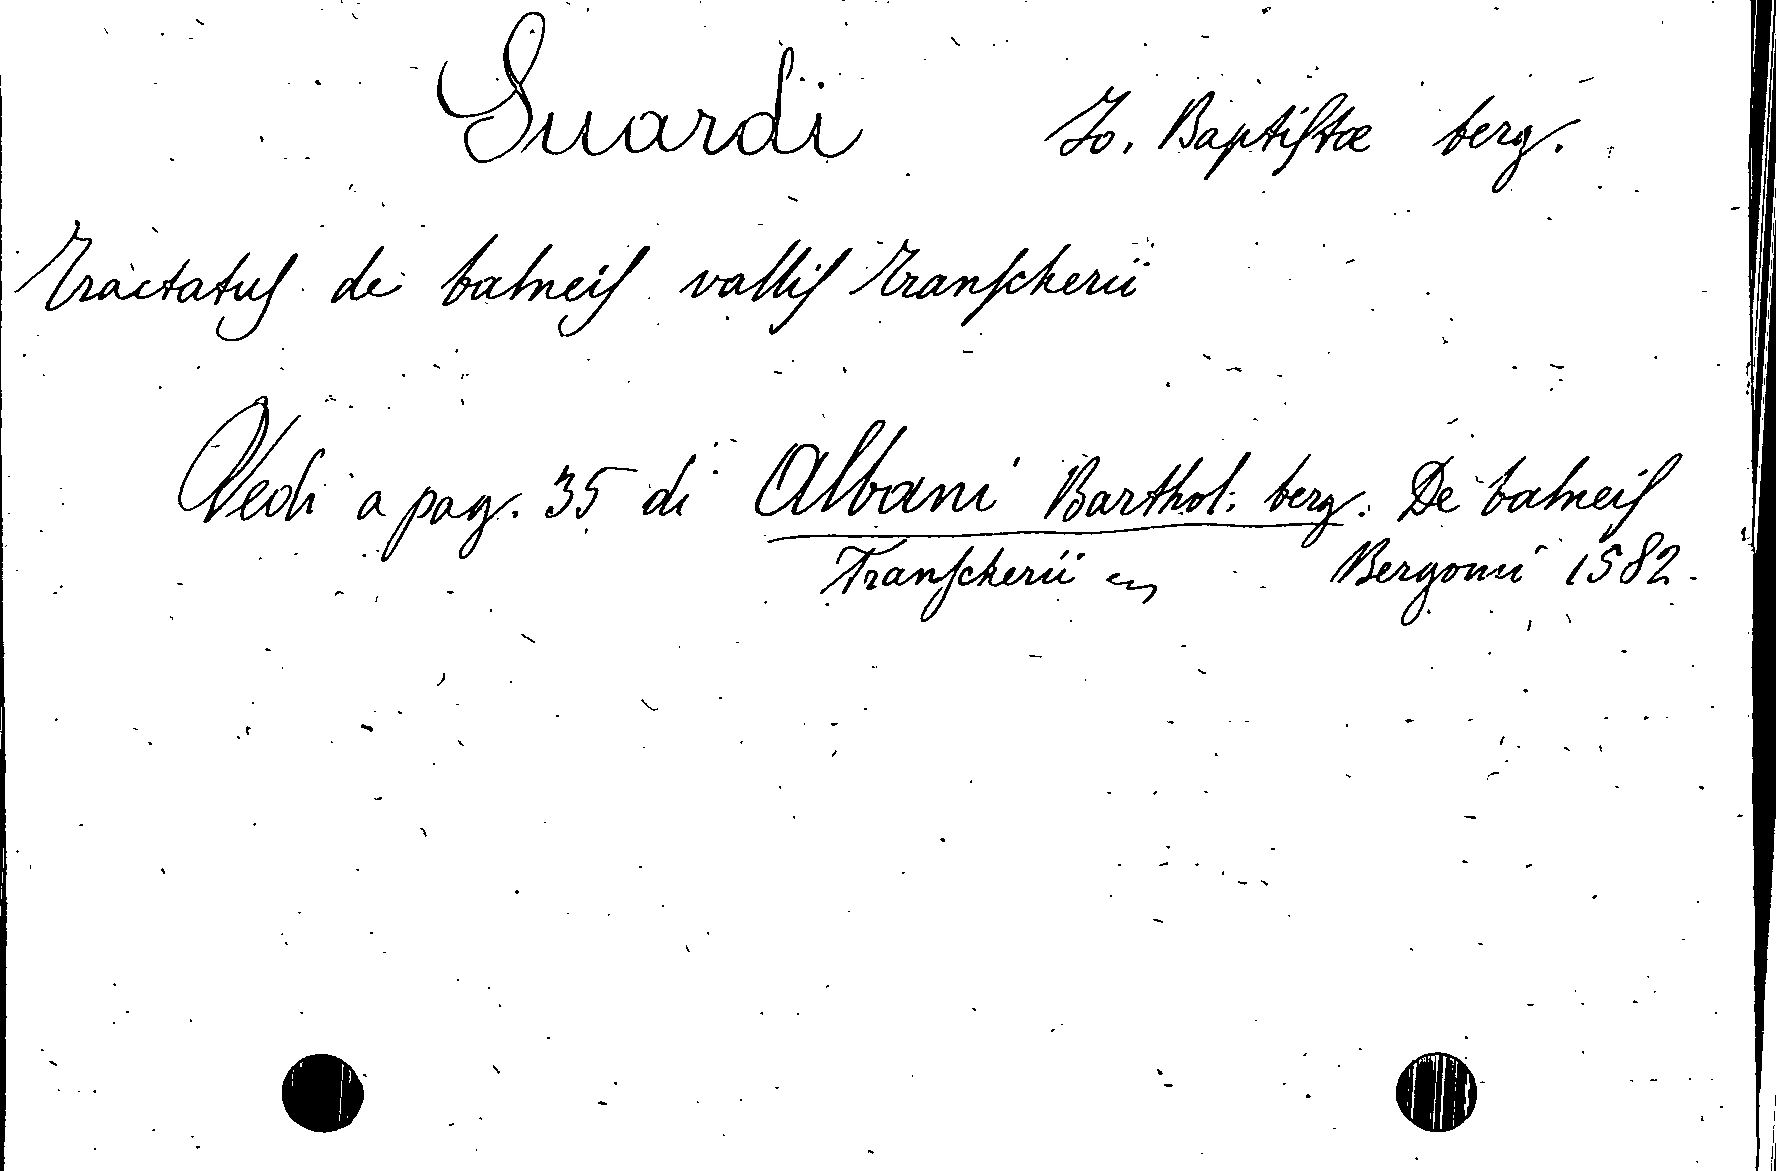 Suardi Jo. Baptistæ berg.
Tractatus de balneis vallis Transcherii
Vedi a pag. 35 di Albani Barthol. berg. De balneis
Transcherii Bergomi 1582.